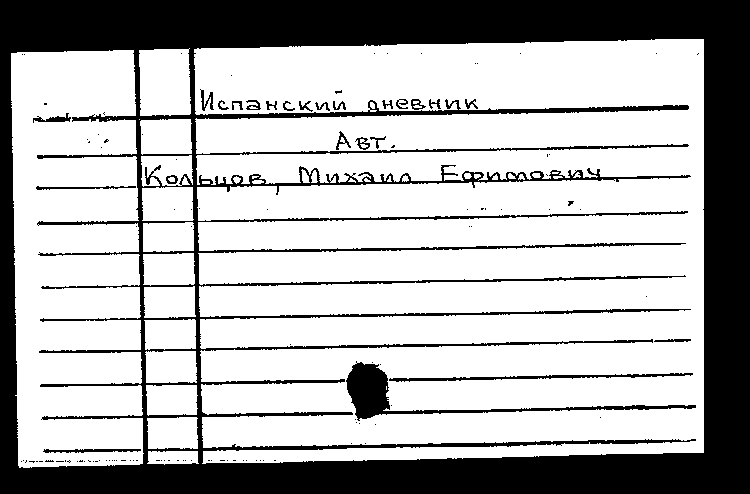 Испанский дневник
Авт.
Кольцов, Михаил Ефимович.